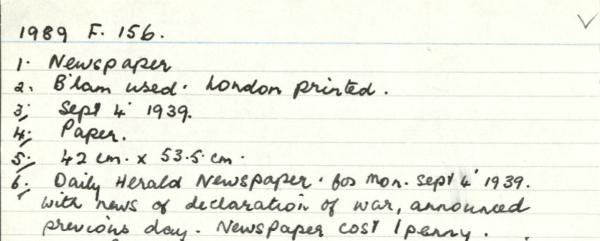 1989 F. 156.
1. Newspaper
2. B'ham used. London printed.
3. Sept 4' 1939.
4. Paper.
5. 42 cm. x 53.5 cm.
6. Daily Herald Newspaper. for Mon. Sept 4' 1939.
with news of declaration of war, announced
previous day. Newspaper cost 1 penny.